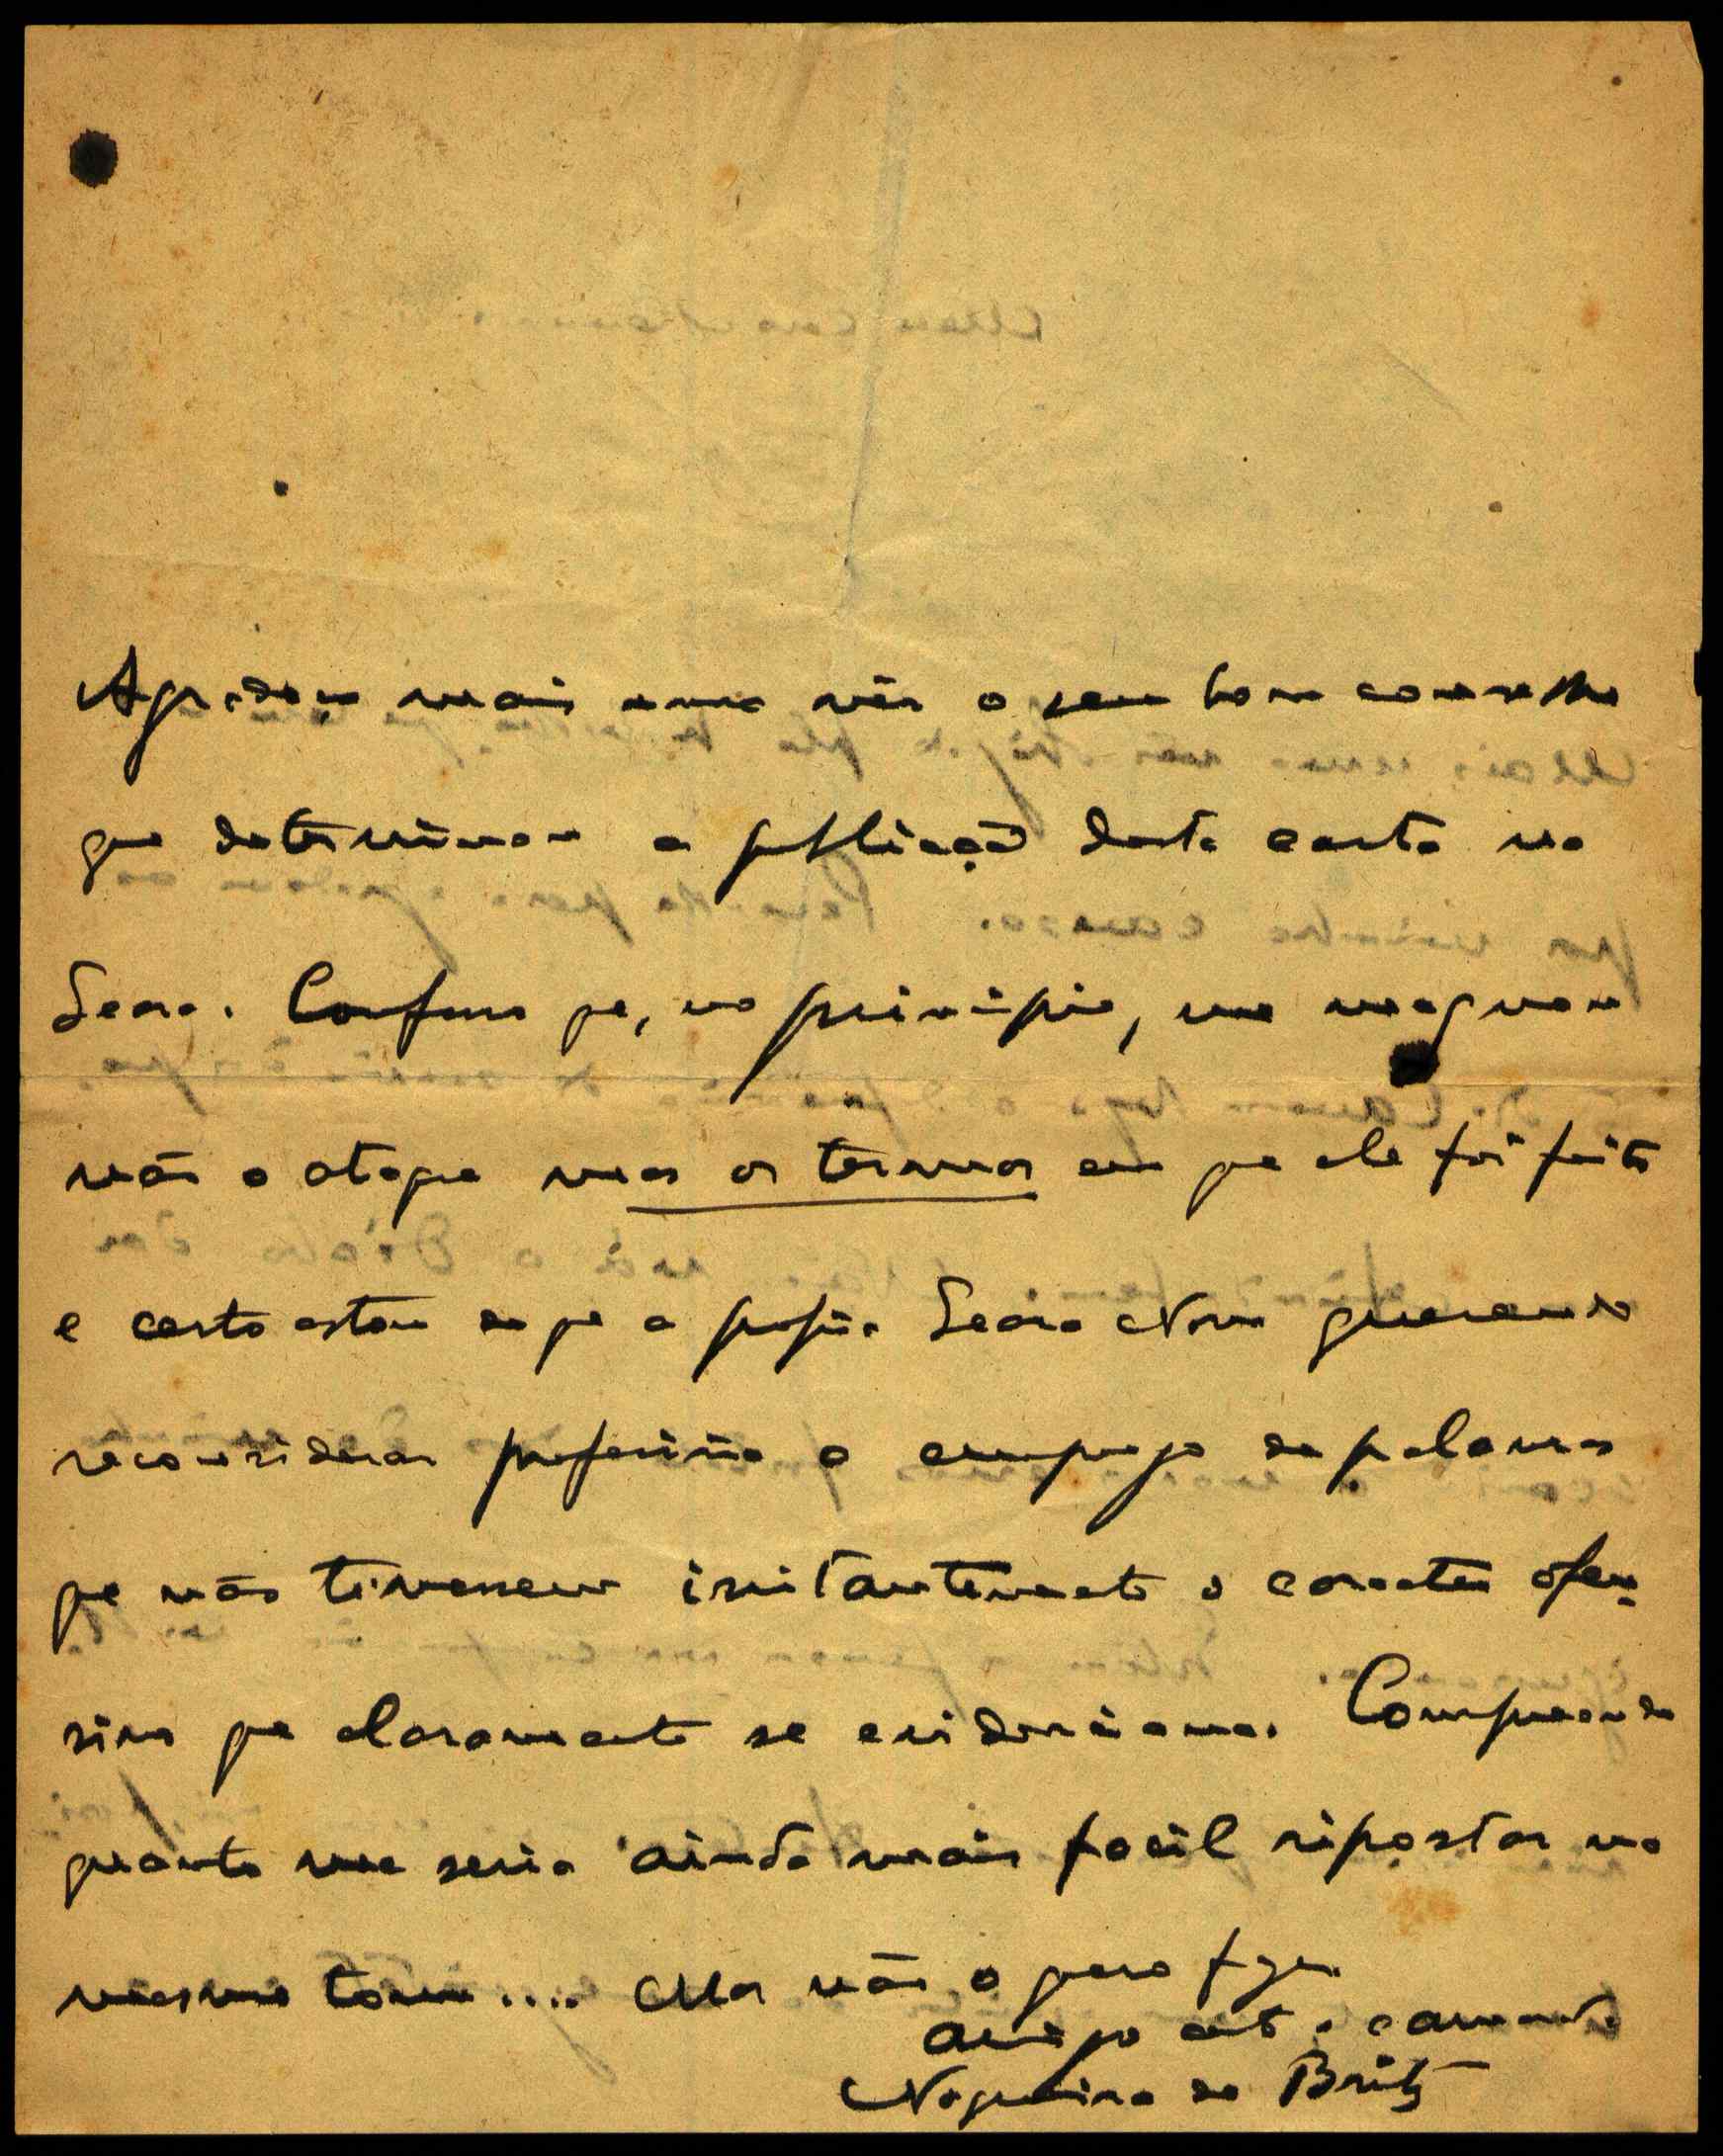 Agradeço mais uma vês o seu bom conselho
que determinou a publicação desta carta na
Seara. Confesso que, no principio, me magoou
não o ataque mas os termos em que ele foi feito
e certo estou de que a propria Seara Nova querendo
reconsiderar preferiria o emprego de palavras
que não tivessem irritantemente o caracter ofen-
sivo que claramente se evidenciava. Compreende
quanto me seria ainda mais facil ripostar no
mesmo tom.... Mas não o quero fazer.
Amigo certo e camarada
Nogueira de Brito